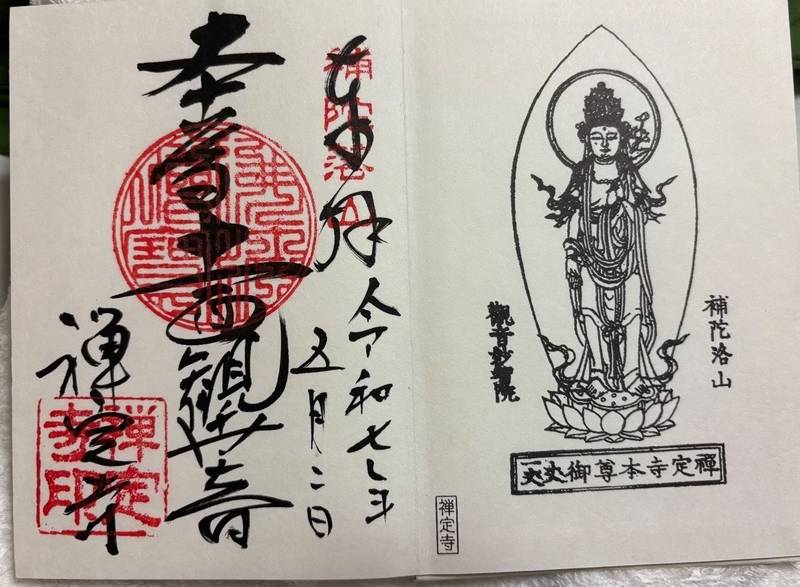 奉拝
補陀洛山
令和七年
五月二日
本尊十一面觀世音
禅定寺
禅定寺印
補陀洛山
觀音妙智院
禪定寺本尊御
禅定寺